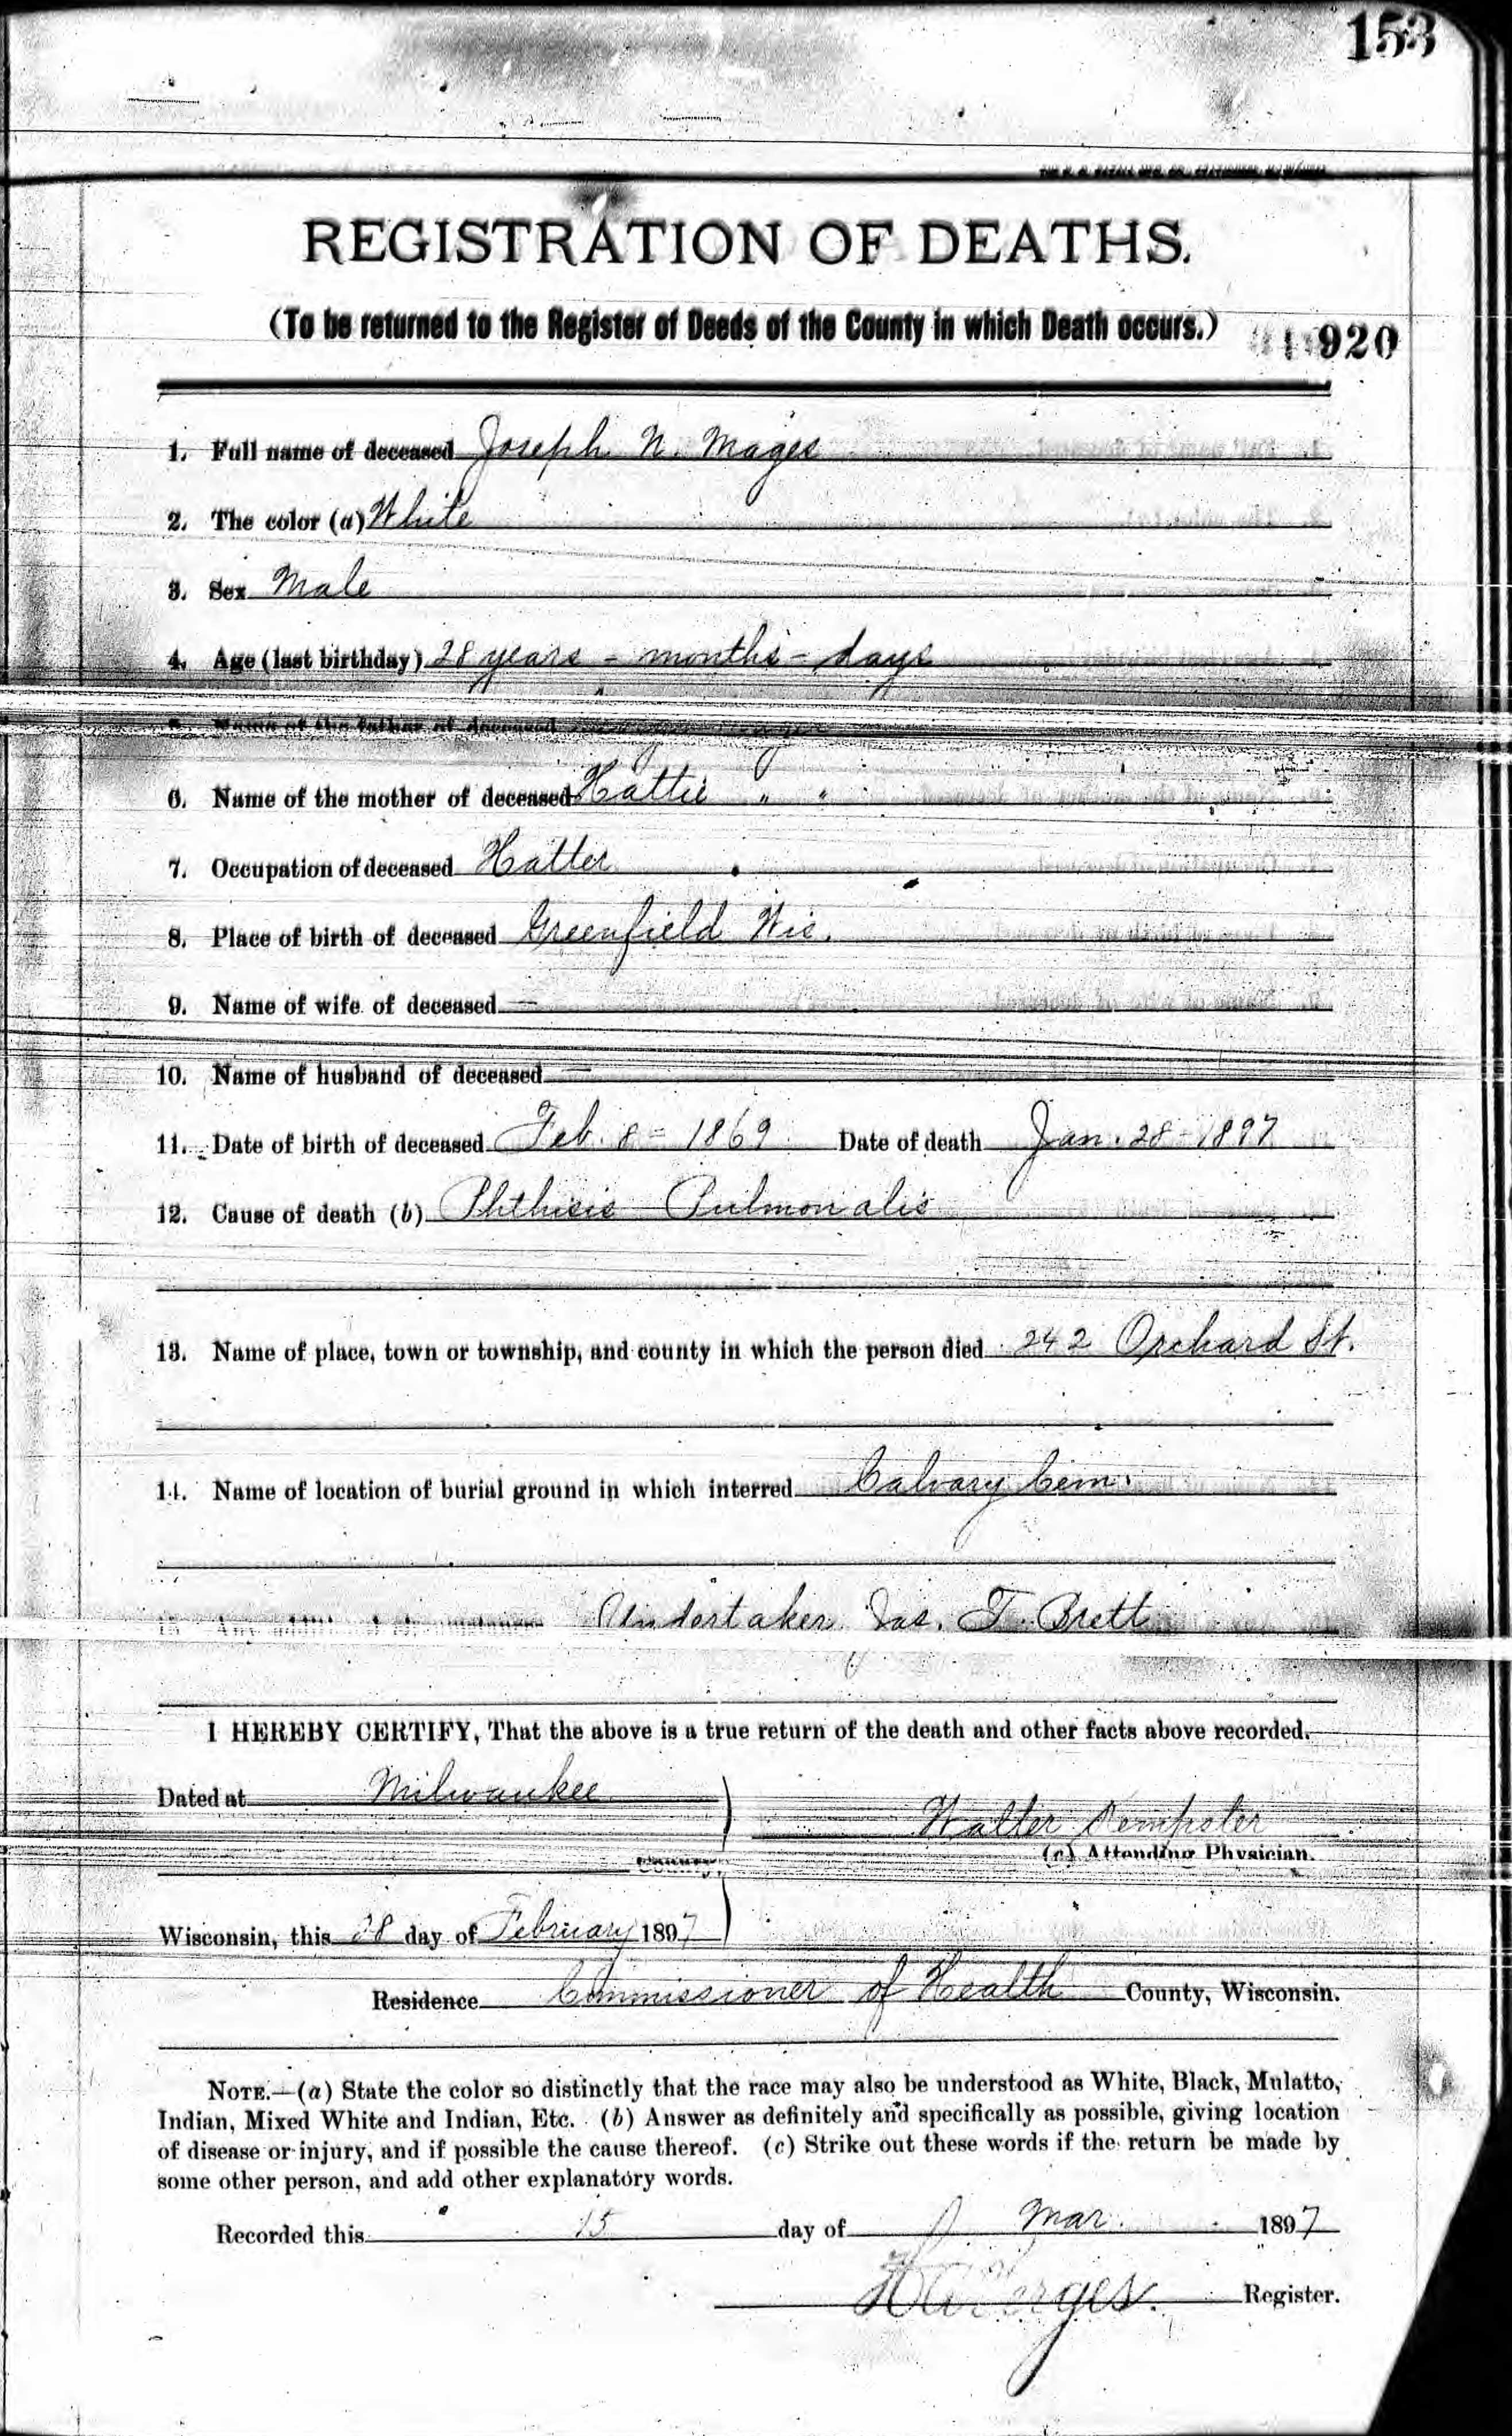 153
REGISTRATION OF DEATHS.
(To be returned to the Register of Deeds of the County in which Death occurs.) 920
1. Full name of deceased Joseph N. Mages
2. The color (a) White
3. Sex Male
4. Age (last birthday) 28 years - months - days
5. Name of the father of deceased
6. Name of the mother of deceased Hattie " "
7. Occupation of deceased Hatter
8. Place of birth of deceased Greenfield Wis.
9. Name of wife of deceased —
10. Name of husband of deceased —
11. Date of birth of deceased Feb. 8 - 1869 Date of death Jan. 28 - 1897
12. Cause of death (b) Phthisis Pulmonalis
13. Name of place, town or township, and county in which the person died 242 Orchard St.
14. Name of location of burial ground in which interred Calvary Cem.
15. Any additional circumstances Undertaker Jas. T. Brett
I HEREBY CERTIFY, That the above is a true return of the death and other facts above recorded.
Dated at Milwaukee
Walter Kempster
County, (c) Attending Physician.
Wisconsin, this 28 day of February 1897
Residence Commissioner of Health County, Wisconsin.
NOTE.—(a) State the color so distinctly that the race may also be understood as White, Black, Mulatto,
Indian, Mixed White and Indian, Etc. (b) Answer as definitely and specifically as possible, giving location
of disease or injury, and if possible the cause thereof. (c) Strike out these words if the return be made by
some other person, and add other explanatory words.
Recorded this 15 day of Mar. 1897
Register.